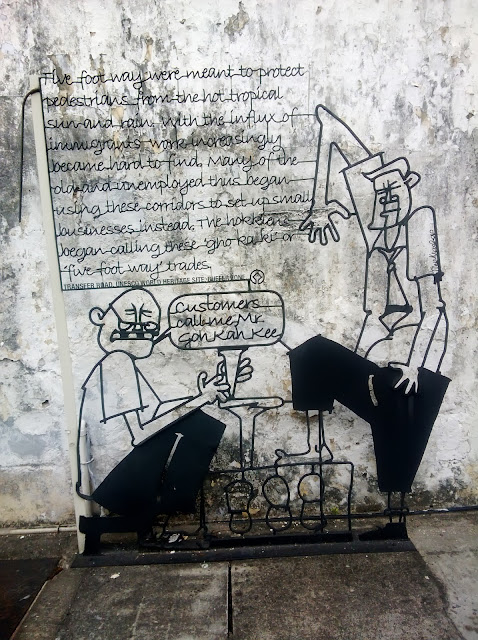 Five foot way were meant to protect
pedestrians from the hot tropical
sun and rain. With the influx of
immigrants work increasingly
became hard to find. Many of the
old and unemployed thus began
using these corridors to set up small
businesses instead. The hokkiens
began calling these "gho kaki" or
"five foot way" trades.
TRANSFER ROAD, UNESCO WORLD HERITAGE SITE:
Customers
call me Mr.
Goh Kah Kee